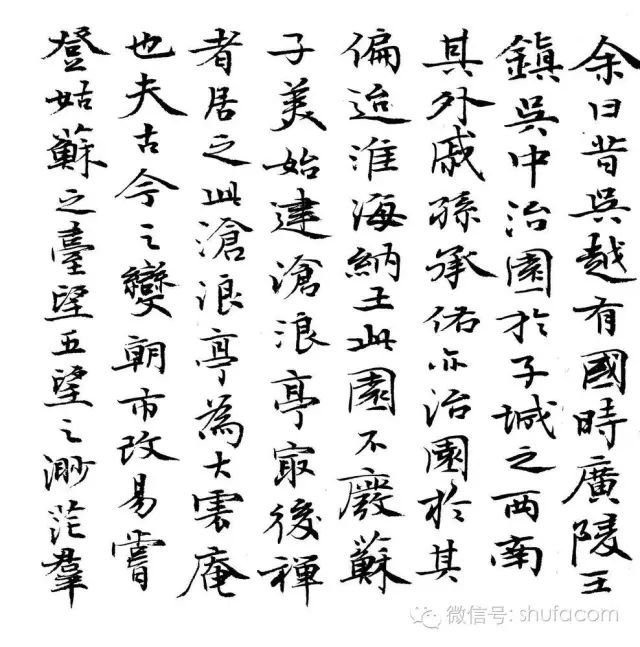 余曰昔吳越有國時廣陵王
鎮吳中治園於子城之西南
其外戚孫承佑亦治園於其
偏迨淮海納土此園不廢蘇
子美始建滄浪亭最後禪
者居之此滄浪亭為大雲庵
也夫古今之變朝市改易嘗
登姑蘇之臺望五望之渺茫羣
微信号: shufacom